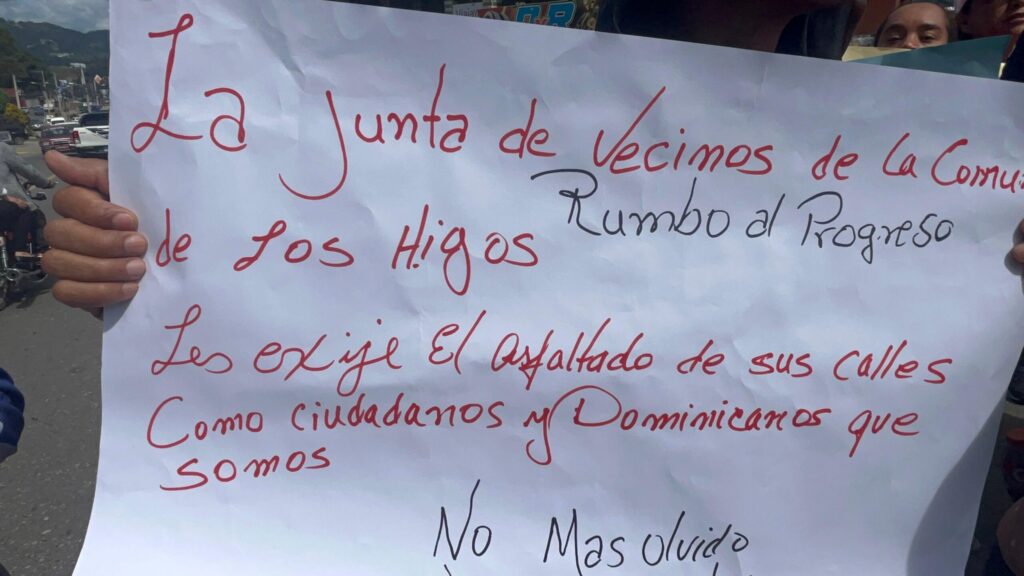 La Junta de Vecinos de la Comu
Rumbo al Progreso
de Los Higos
Les exije El asfaltado de sus calles
Como ciudadanos y Dominicanos que
somos
No Mas olvido